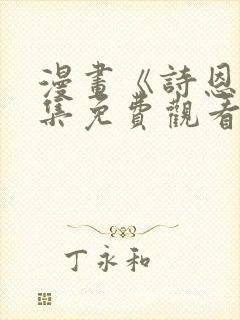 漫畫《詩恩
集免費觀看
丁永和